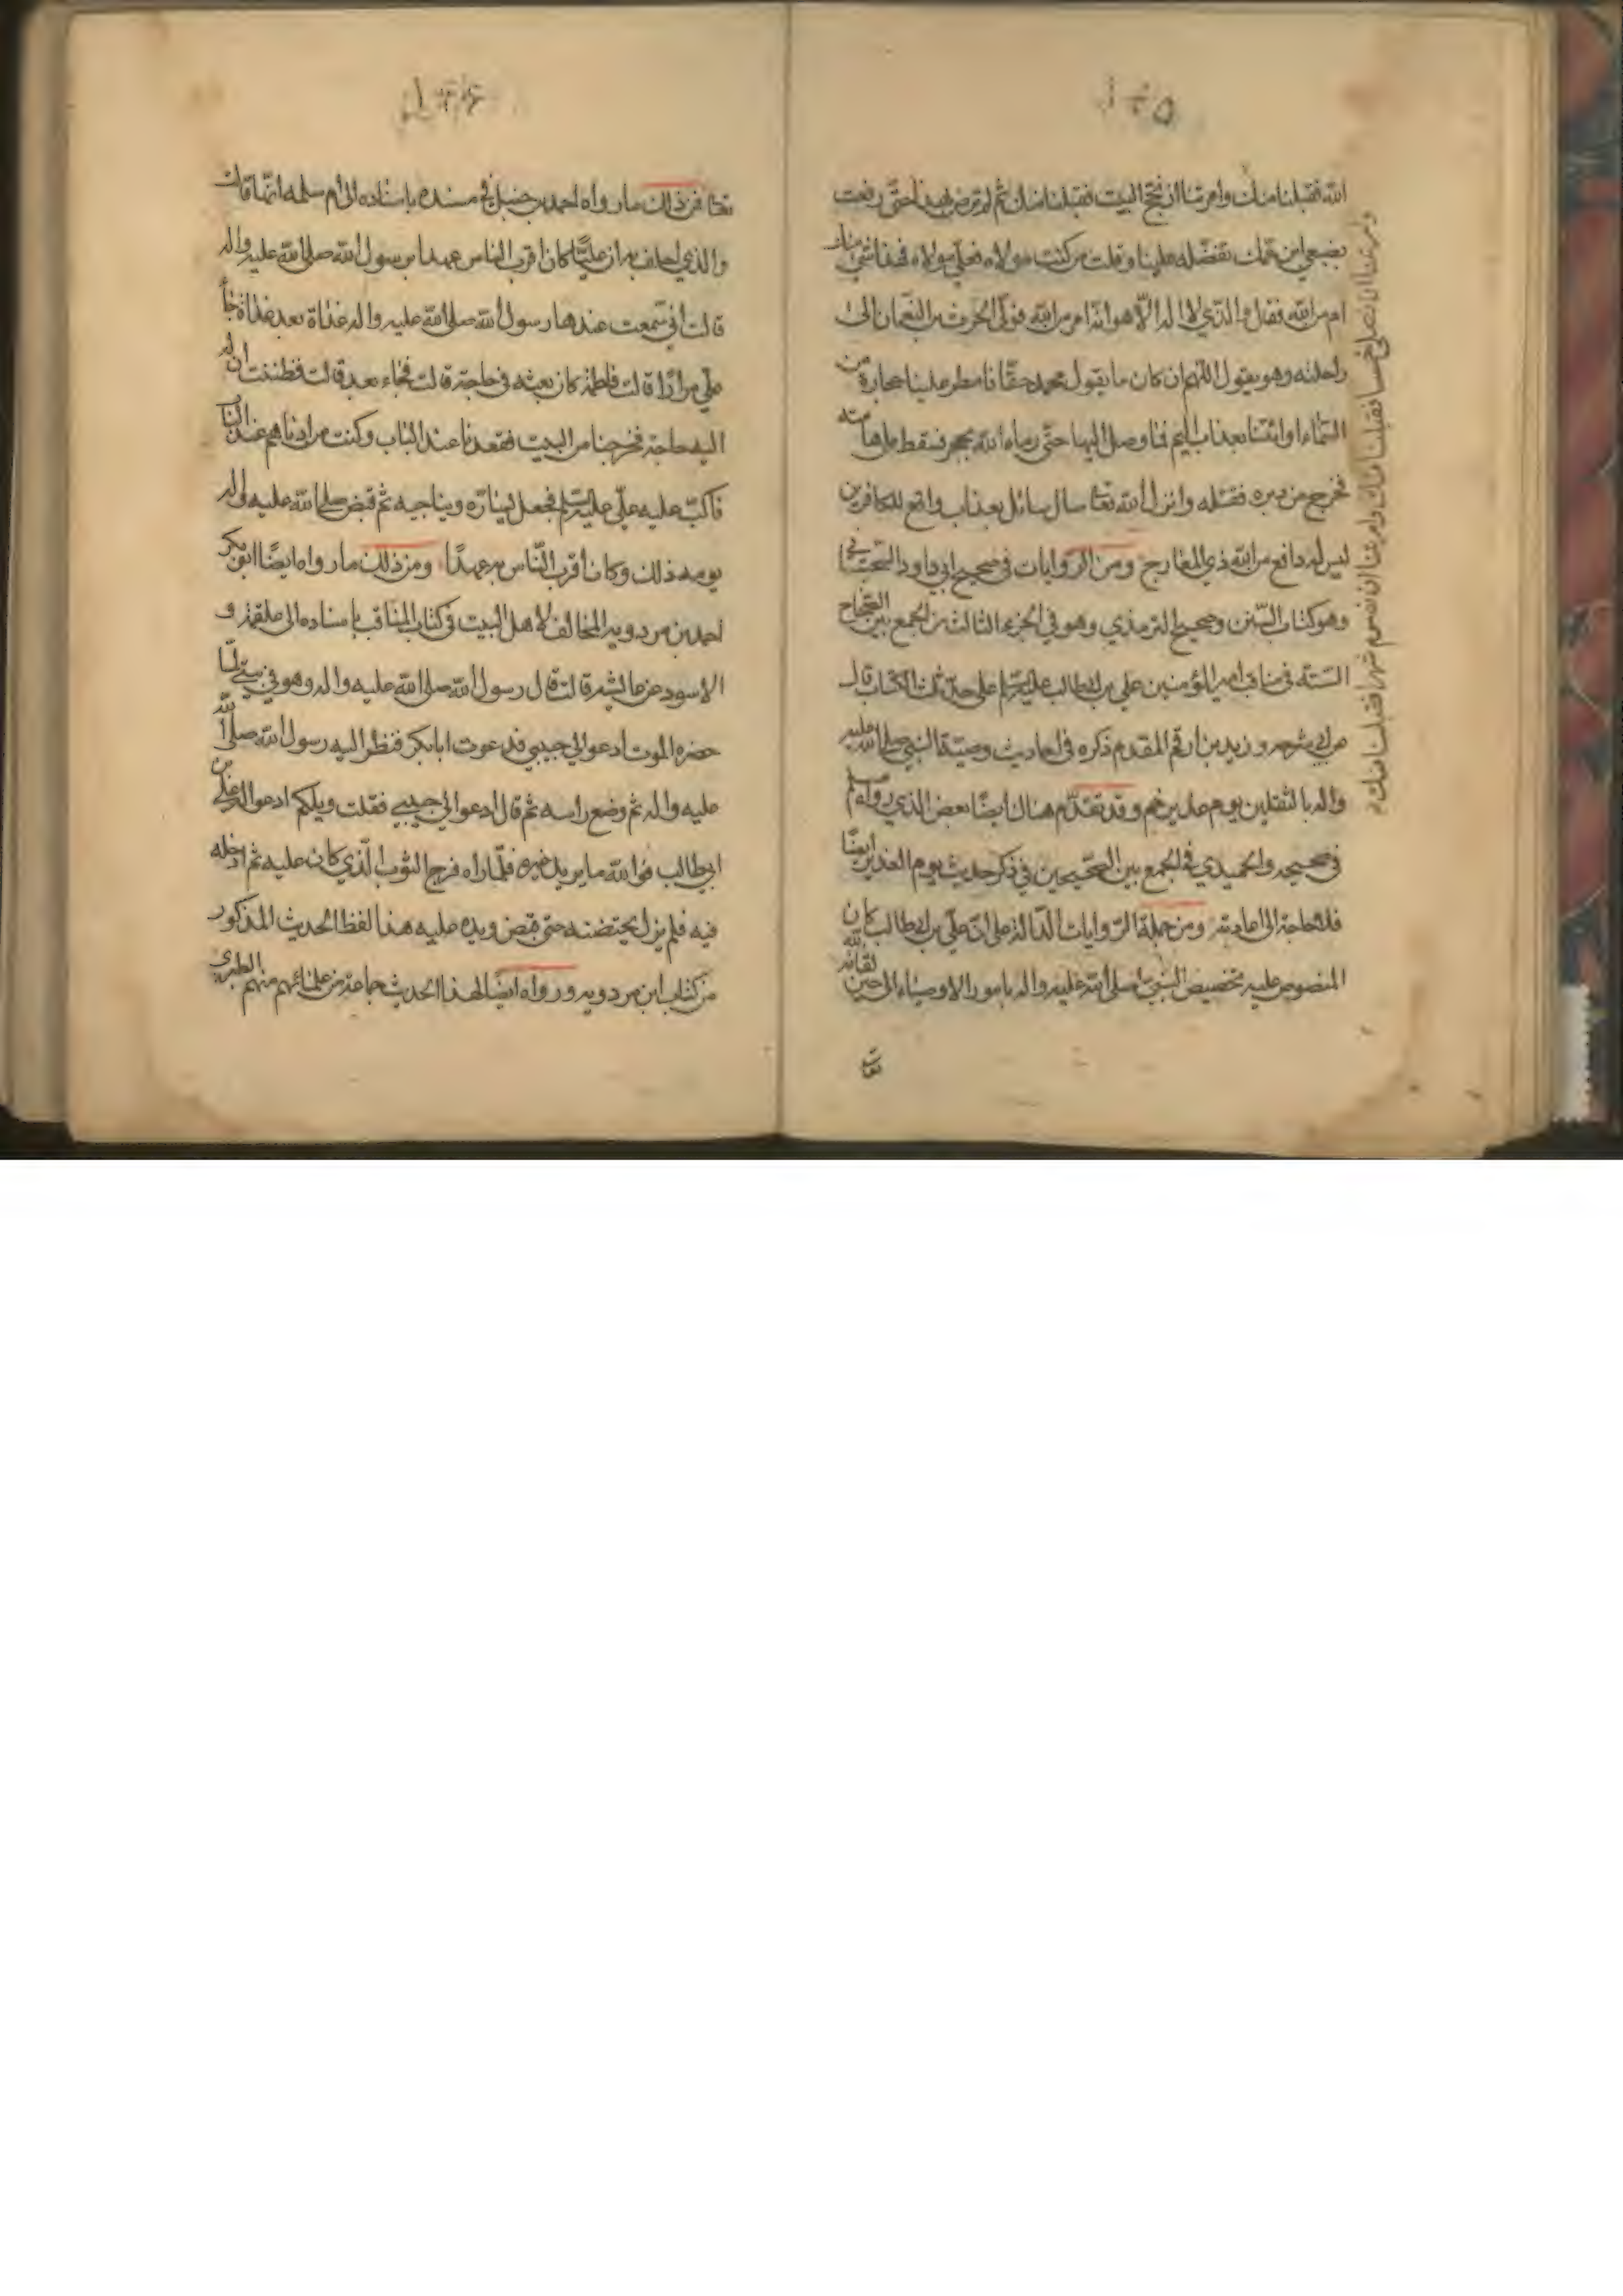 الله فقبلنا منك وامرتنا ان نحج البيت فقبلنا منك ثم لم ترض بهذا حتى رفعت
بضبعي ابن عمك تفضله علينا وقلت من كنت مولاه فعلي مولاه فهذا شئ منك
ام من الله فقال والذي لا اله الا هو انه امر من الله فولى الحرث بن النعمان الى
راحلته وهو يقول اللهم ان كان ما يقول محمد حقا فامطر علينا حجارة من
السماء او ائتنا بعذاب اليم فما وصل اليها حتى رماه الله بحجر فسقط على هامته
فخرج من دبره فقتله وانزل الله تعا سال سائل بعذاب واقع للكافرين
ليس له دافع من الله ذي المعارج ومن الروايات في صحيح ابي داود السجستاني
وهو كتاب السنن وصحيح الترمذي وهو في الجزء الثالث من الجمع بين الصحاح
السته في مناقب امير المؤمنين علي بن ابي طالب عليه السلام على حد ثلث الكتاب قال
عن ابي سرحه و زيد بن ارقم المقدم ذكره في احاديث وصية النبي صلى الله عليه
واله بالثقلين يوم غدير خم وقد تقدم هناك ايضا بعض الذي رواه مسلم
في صحيحه والحميدي في الجمع بين الصحيحين في ذكر حديث يوم الغدير ايضا
فلا حاجة الى اعادته ومن جملة الروايات الدالة على ان علي بن ابي طالب كان
المنصوص عليه بتخصيص النبي صلى الله عليه واله بامور الاوصياء الى حين لقائه لله
تعا
وامرتنا ان نصلي خمسا فقبلنا منك وامرتنا ان نصوم شهرا فقبلنا منك
تعا فمن ذلك ما رواه احمد بن حنبل في مسنده باسناده الى ام سلمه انها قالت
والذي احلف به ان عليا كان اقرب الناس عهدا برسول الله صلى الله عليه واله
قالت اني سمعت عندها رسول الله صلى الله عليه واله غداة بعد غداة جاء
علي مرارا قالت فاطمة كان بعثه في حاجة قالت فجاء بعد قالت فظننت ان له
اليه حاجة فخرجنا من البيت فقعدنا عند الباب وكنت من ادناهم عند الباب
فاكب عليه علي عليه السلم فجعل يساره ويناجيه ثم قبض صلى الله عليه واله
يومه ذلك وكان اقرب الناس به عهدا ومن ذلك ما رواه ايضا ابو بكر
احمد بن مردويه المخالف لاهل البيت في كتاب المناقب باسناده الى علقمة و
الاسود عن عائشة قالت قال رسول الله صلى الله عليه واله وهو في بيتي لما
حضره الموت ادعوا لي حبيبي فدعوت ابا بكر فنظر اليه رسول الله صلى الله
عليه واله ثم وضع راسه ثم قال ادعوا لي حبيبي فقلت ويلكم ادعوا له علي بن
ابي طالب فوالله ما يريد غيره فلما راه فرج الثوب الذي كان عليه ثم ادخله
فيه فلم يزل يحتضنه حتى قبض ويده عليه هذا لفظ الحديث المذكور
من كتاب ابن مردويه و رواه ايضا لهذا الحديث جماعة من علمائهم منهم الطبري